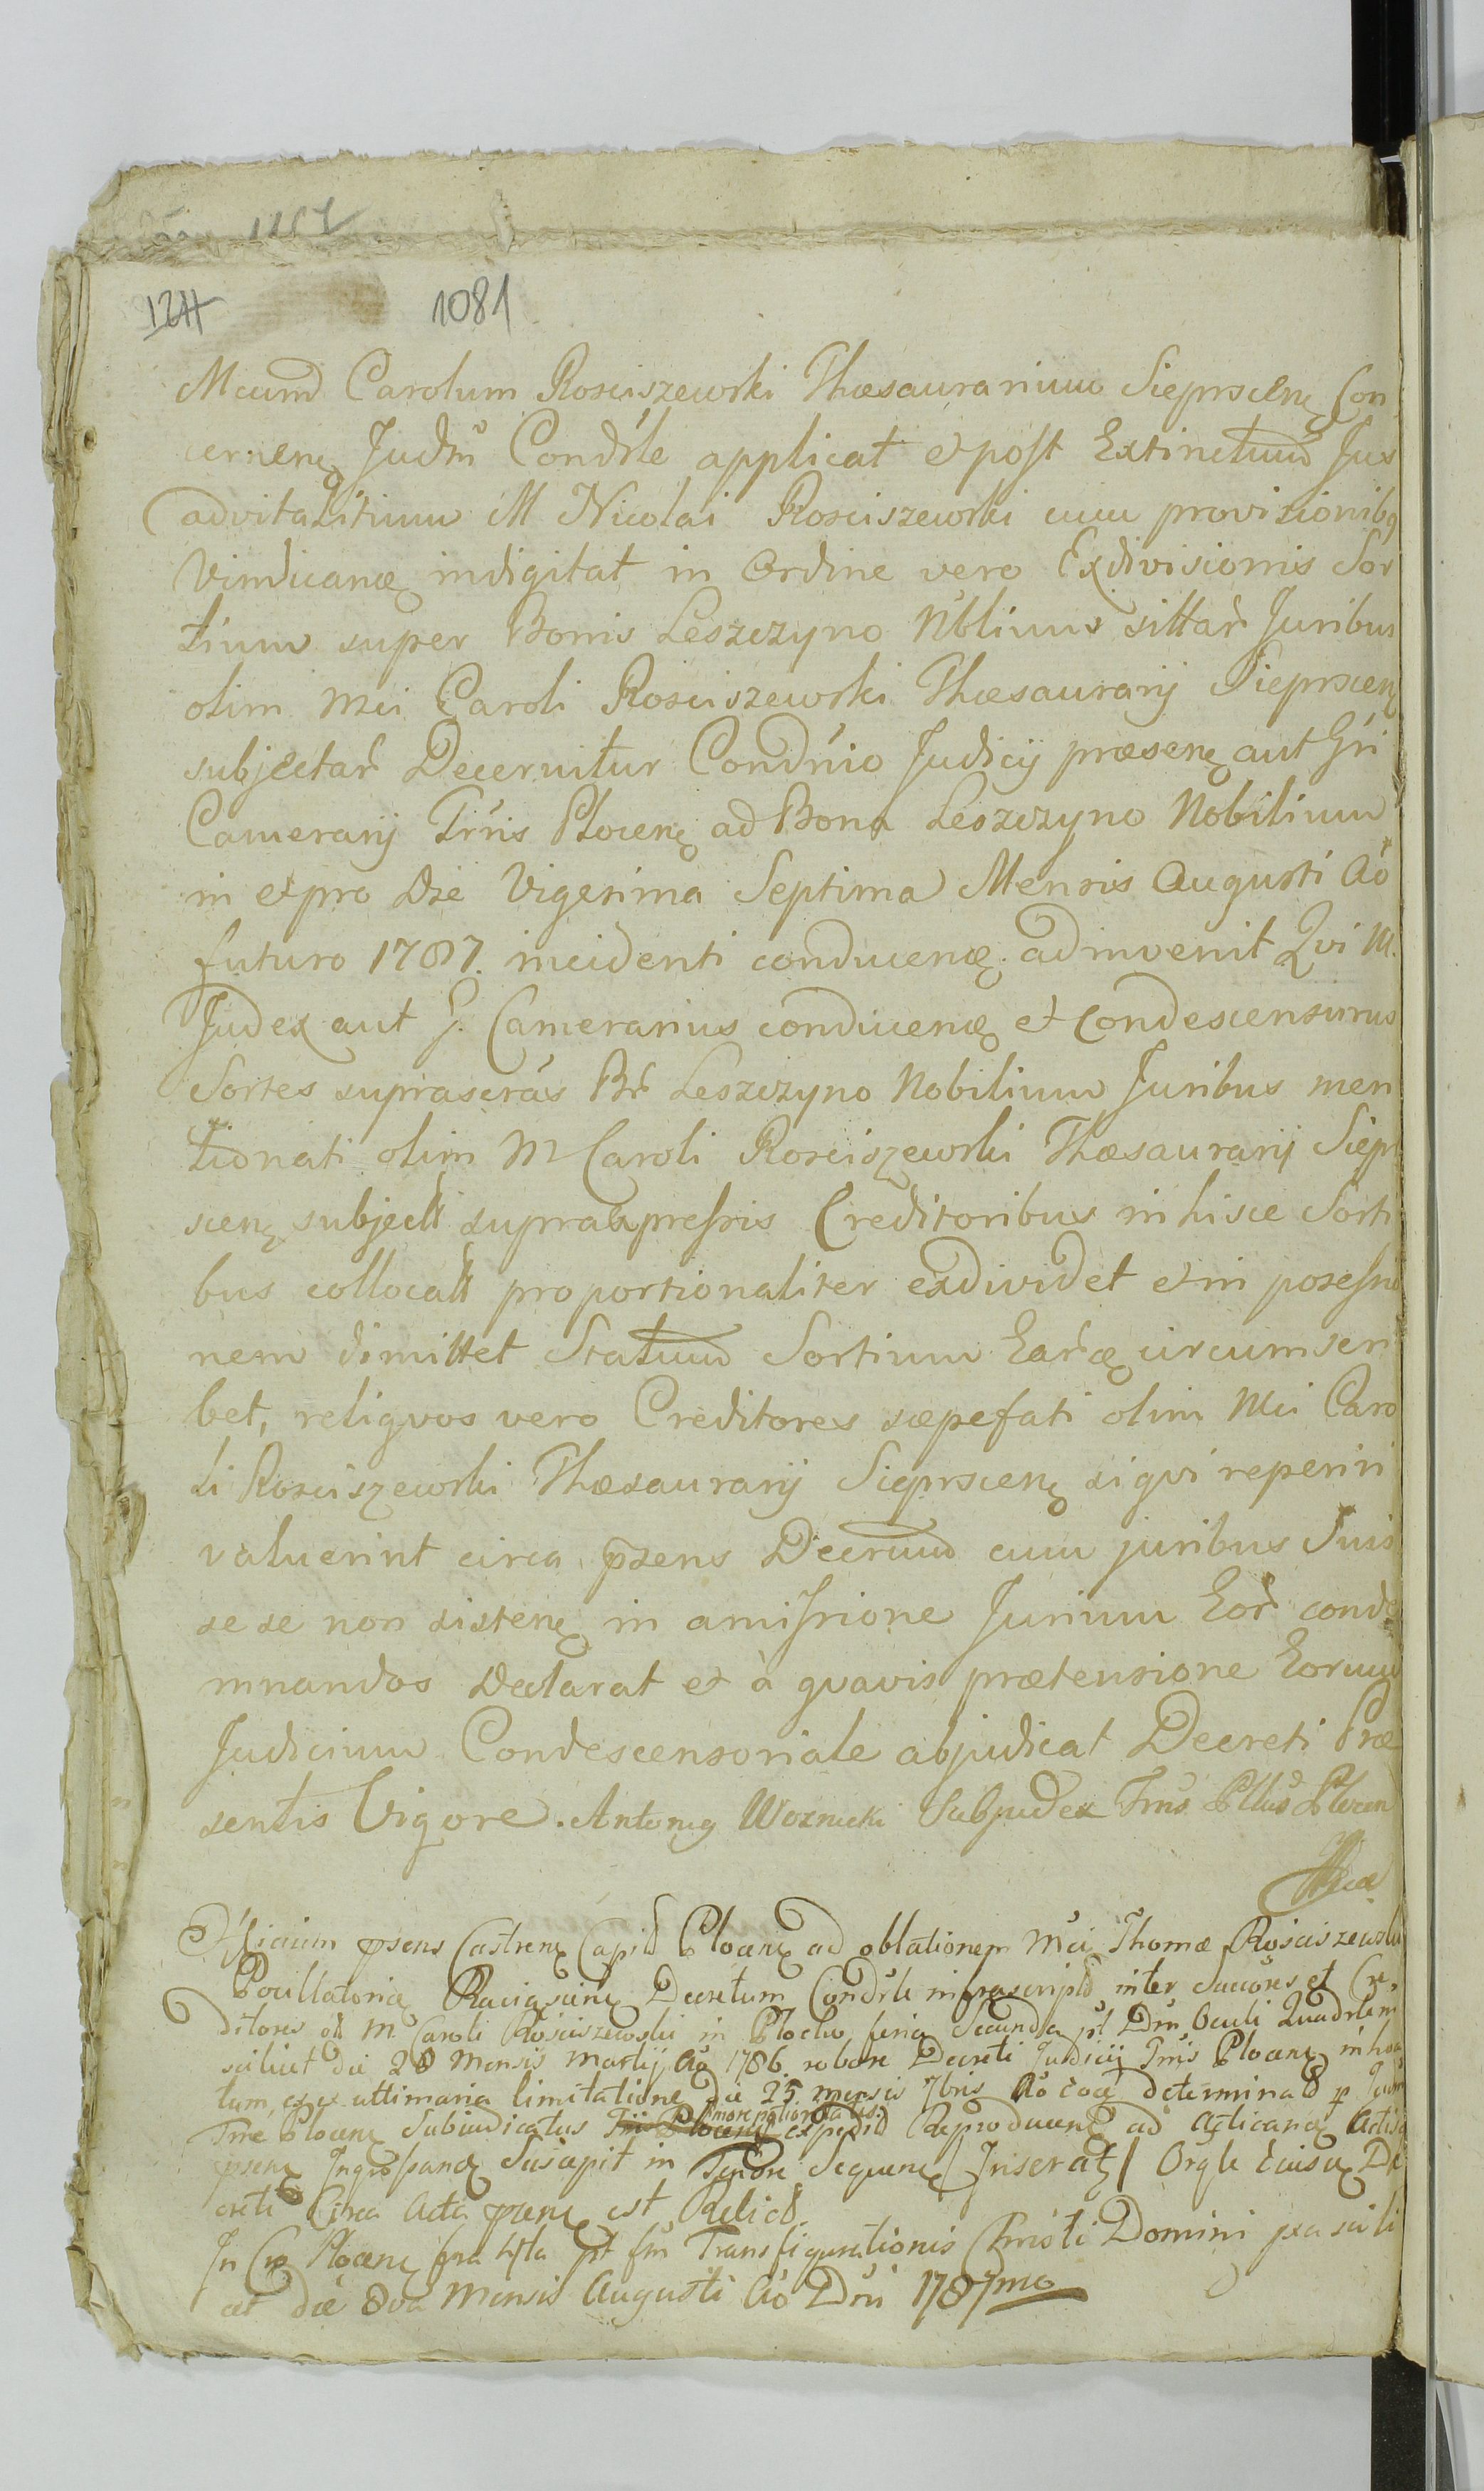 1211
1081
Mcum Carolum Rosciszewski Thesaurarium Sieprscenę Con
cernenę Judm Condrle applicat et post Extinctum Jus
advitalitium M Nicolai Rosciszewski cum provisionibq
Vindicandę indigitat in Ordine vero Exdivisionis Sor
tium super Bonis Leszczyno Nblium sittar Juribus
olim Mci Caroli Rosciszewski Thesaurarij Sieprscenę
subjectar Decernitur Condrnio Judicij præsenę aut Gri
Camerarij Trris Plocenę ad Bona Leszczyno Nobilium
in et pro Die Vigesima Septima Mensis Augusti Ao
futuro 1787. incidenti conducendę adinvenit Qvi M.
Judex aut G. Camerarius conducendę et Condescensurus
Sortes suprascras Br Leszczyno Nobilium Juribus men
tionati olim M Caroli Rosciszewski Thesaurarij Siepr
scenę subjectt supraexpressis Creditoribus in hisce Sorti
bus collocatt proportionaliter exdividet et in possessio
nem dimittet Statum Sortium Earꝗ circumscri
bet, reliqvos vero Creditores sæpefati olim Mci Caro
li Rosciszewski Thesaurarij Sieprscenę siqvi reperiri
valuerint circa præsens Decretum cum juribus Suis
se se non sistenę in amissione Jurium Eor conde
mnandos declarat et à qvavis prætensione Eorum
Judicium Condescensoriale abjudicat Decreti Præ
sentis Vigore. Antonig Woznicki Subjudex Trrus Pllus Plocen
Officium psens Castrenę Capld Plocenę ad oblationem Mci Thomæ Rosciszewski
Pocillatoris Raciąscenę Decretum Condrle infrascripld inter Succres et Cre,
ditores ol M Caroli Rosciszewski in Plocko feria Secunda pt Dm Oculi Quadrlem
scilicet die 20 Mensis Martij Ao 1786 robore Decreti Judicij Trris Plocenę inhoa
tum, et ex ultimaria limitatione die 25 mensis 7bris Ao eoce determinald p Judm
more potioritatis
Trre Plocenę Subiudicatus Trri Plocenę expedild Reproducenę ad acticandę Actisq
psenę Ingrossandę Suscepit in Tenore Sequenę / Inseratę / Orgle huiusce De
creti Circa Acta psenę est Relicld.
In Cro Plocenę fria 4ta pt fm Transfigurationis Christi Domini pxa scili
cet die 8va Mensis Augusti Ao Dni 1787mo